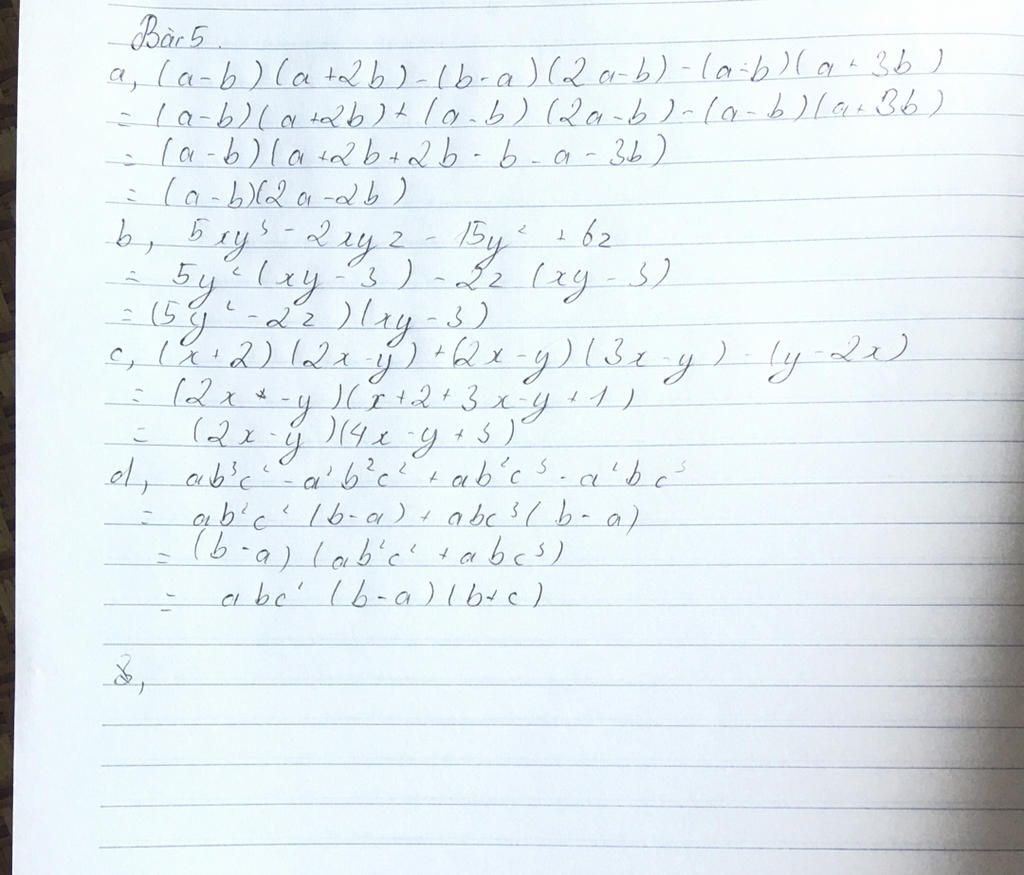 Bài 5.
a, (a-b)(a+2b)-(b-a)(2a-b)-(a-b)(a+3b)
= (a-b)(a+2b)+(a-b)(2a-b)-(a-b)(a+3b)
= (a-b)(a+2b+2b-b-a-3b)
= (a-b)(2a-2b)
b, 5xy³ - 2xyz - 15y² + 6z
= 5y²(xy-3) - 2z(xy-3)
= (5y²-2z)(xy-3)
c, (x+2)(2x-y)+(2x-y)(3x-y)-(y-2x)
= (2x-y)(x+2+3x-y+1)
= (2x-y)(4x-y+3)
d, ab³c² - a²b²c² + ab²c³ - a²bc³
= ab²c²(b-a) + abc³(b-a)
= (b-a)(ab²c² + abc³)
= abc²(b-a)(b+c)